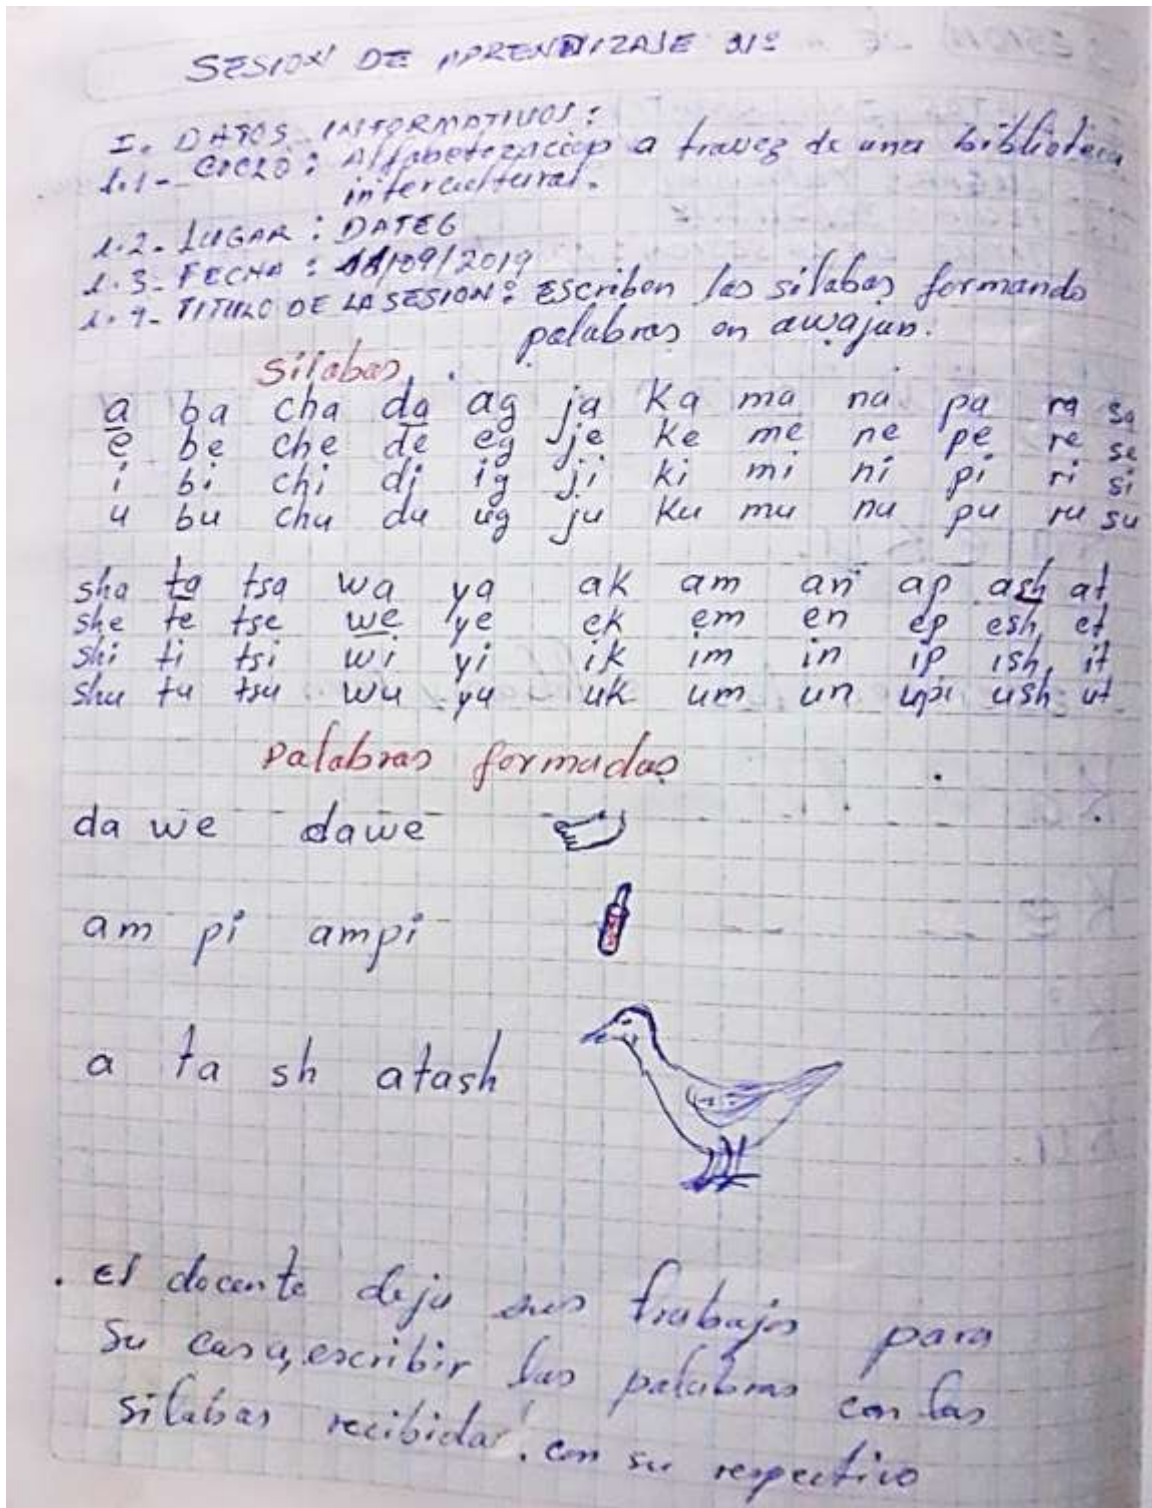 SESION DE APRENDIZAJE Nº
I. DATOS INFORMATIVOS:
1.1- CICLO: Alfabetización a travez de una biblioteca
intercultural.
1.2- LUGAR: DATEG
1.3- FECHA: 11/09/2019
1.4- TITULO DE LA SESION: escriben las silabas formando
palabras en awajun.
Silabas
a ba cha da ag ja ka ma na pa ra sa
e be che de eg je ke me ne pe re se
i bi chi di ig ji ki mi ni pi ri si
u bu chu du ug ju ku mu nu pu ru su
sha ta tsa wa ya ak am an ap ash at
she te tse we ye ek em en ep esh, et
shi ti tsi wi yi ik im in ip ish, it
shu tu tsu wu yu uk um un up ush ut
Palabras formadas
da we dawe
am pi ampi
a ta sh atash
. El docente deja sus trabajos para
su casa, escribir las palabras con las
silabas recibidas. con su respectivo